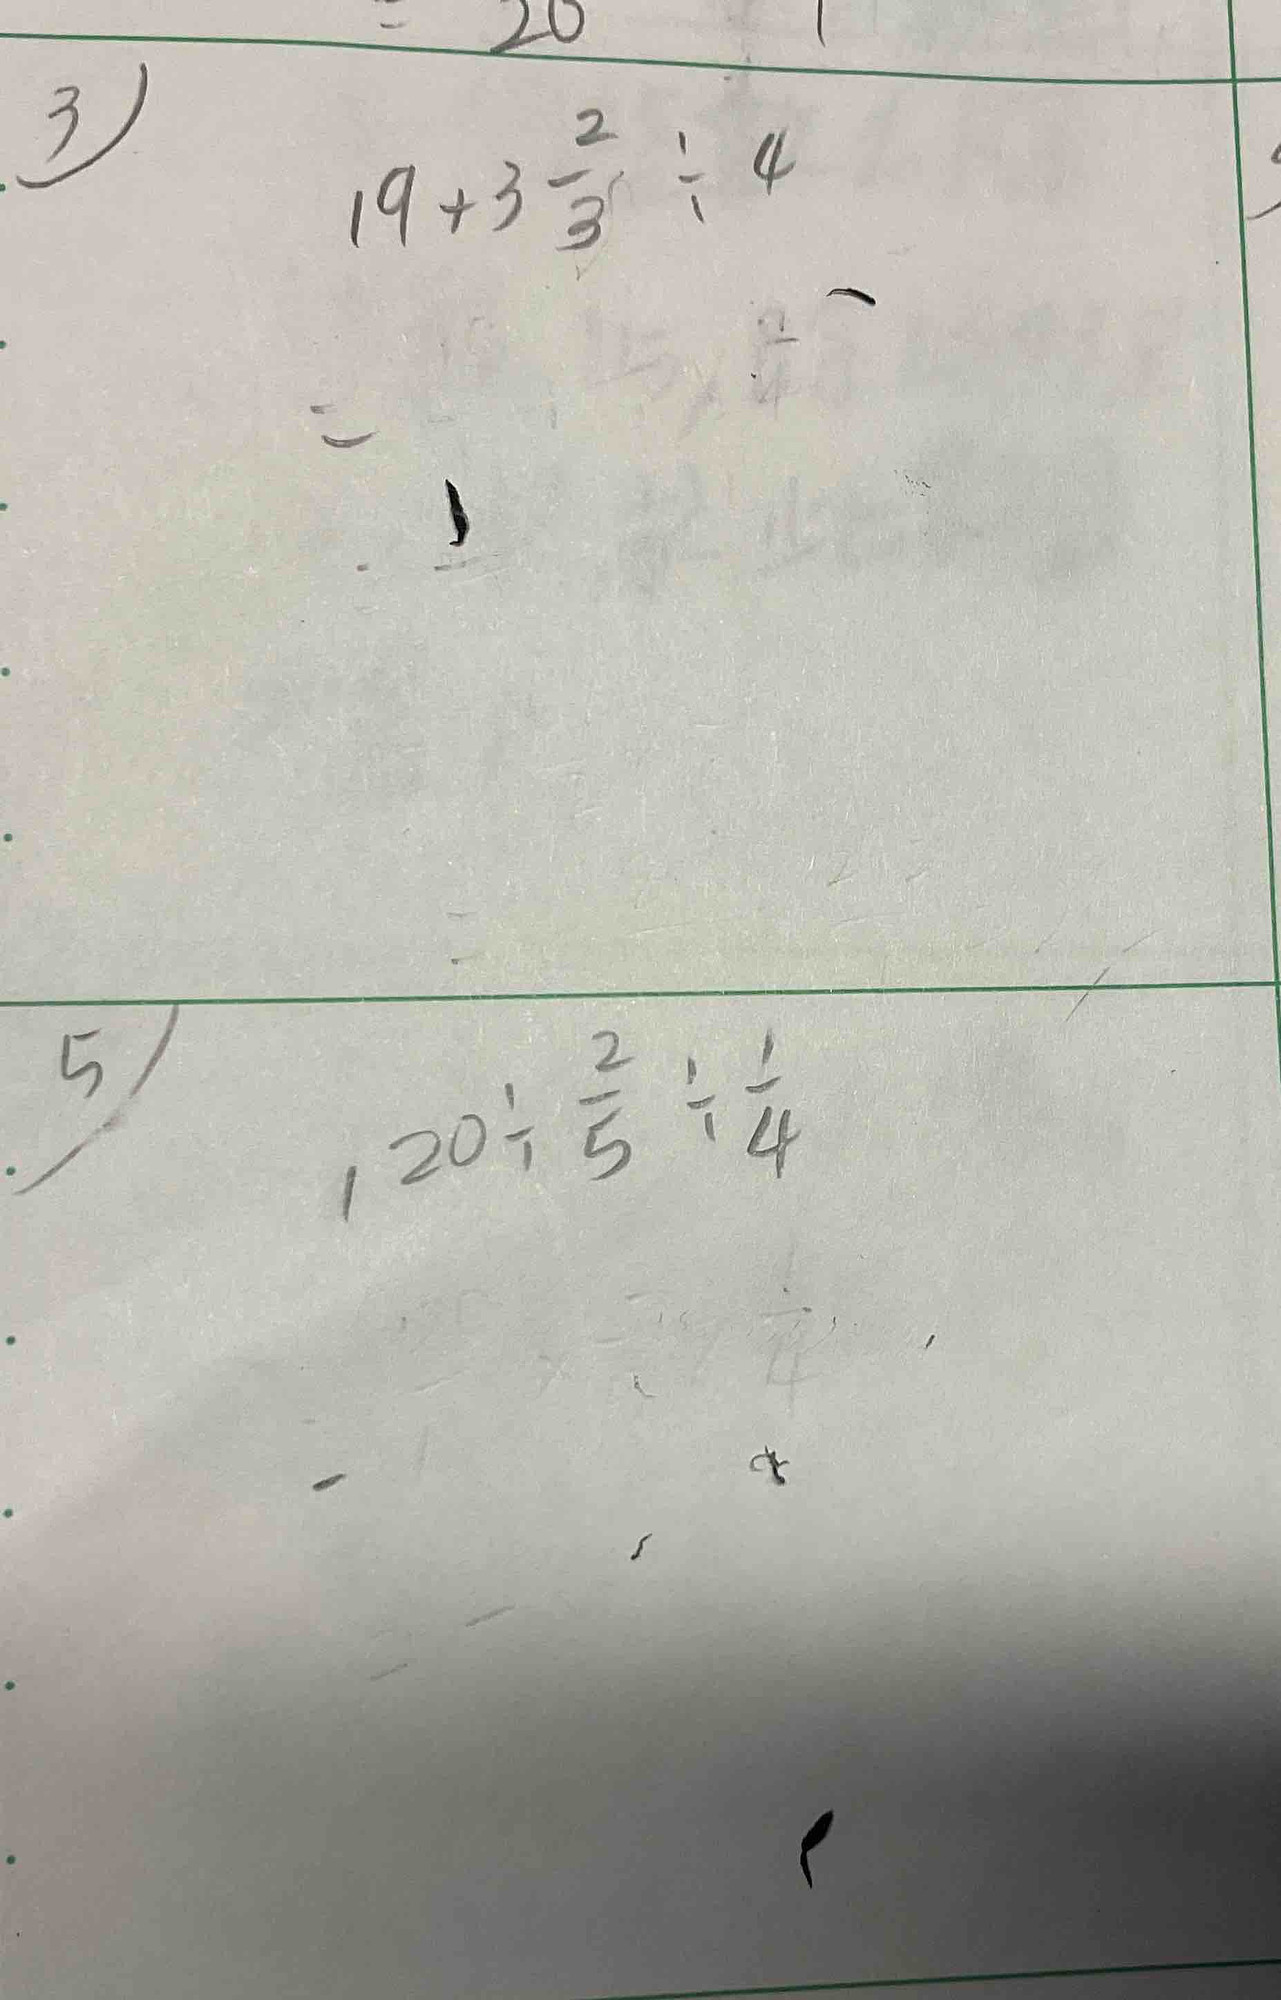 = 20
3)
19 + 3 2/3 ÷ 4
=
=
5)
20 ÷ 2/5 ÷ 1/4